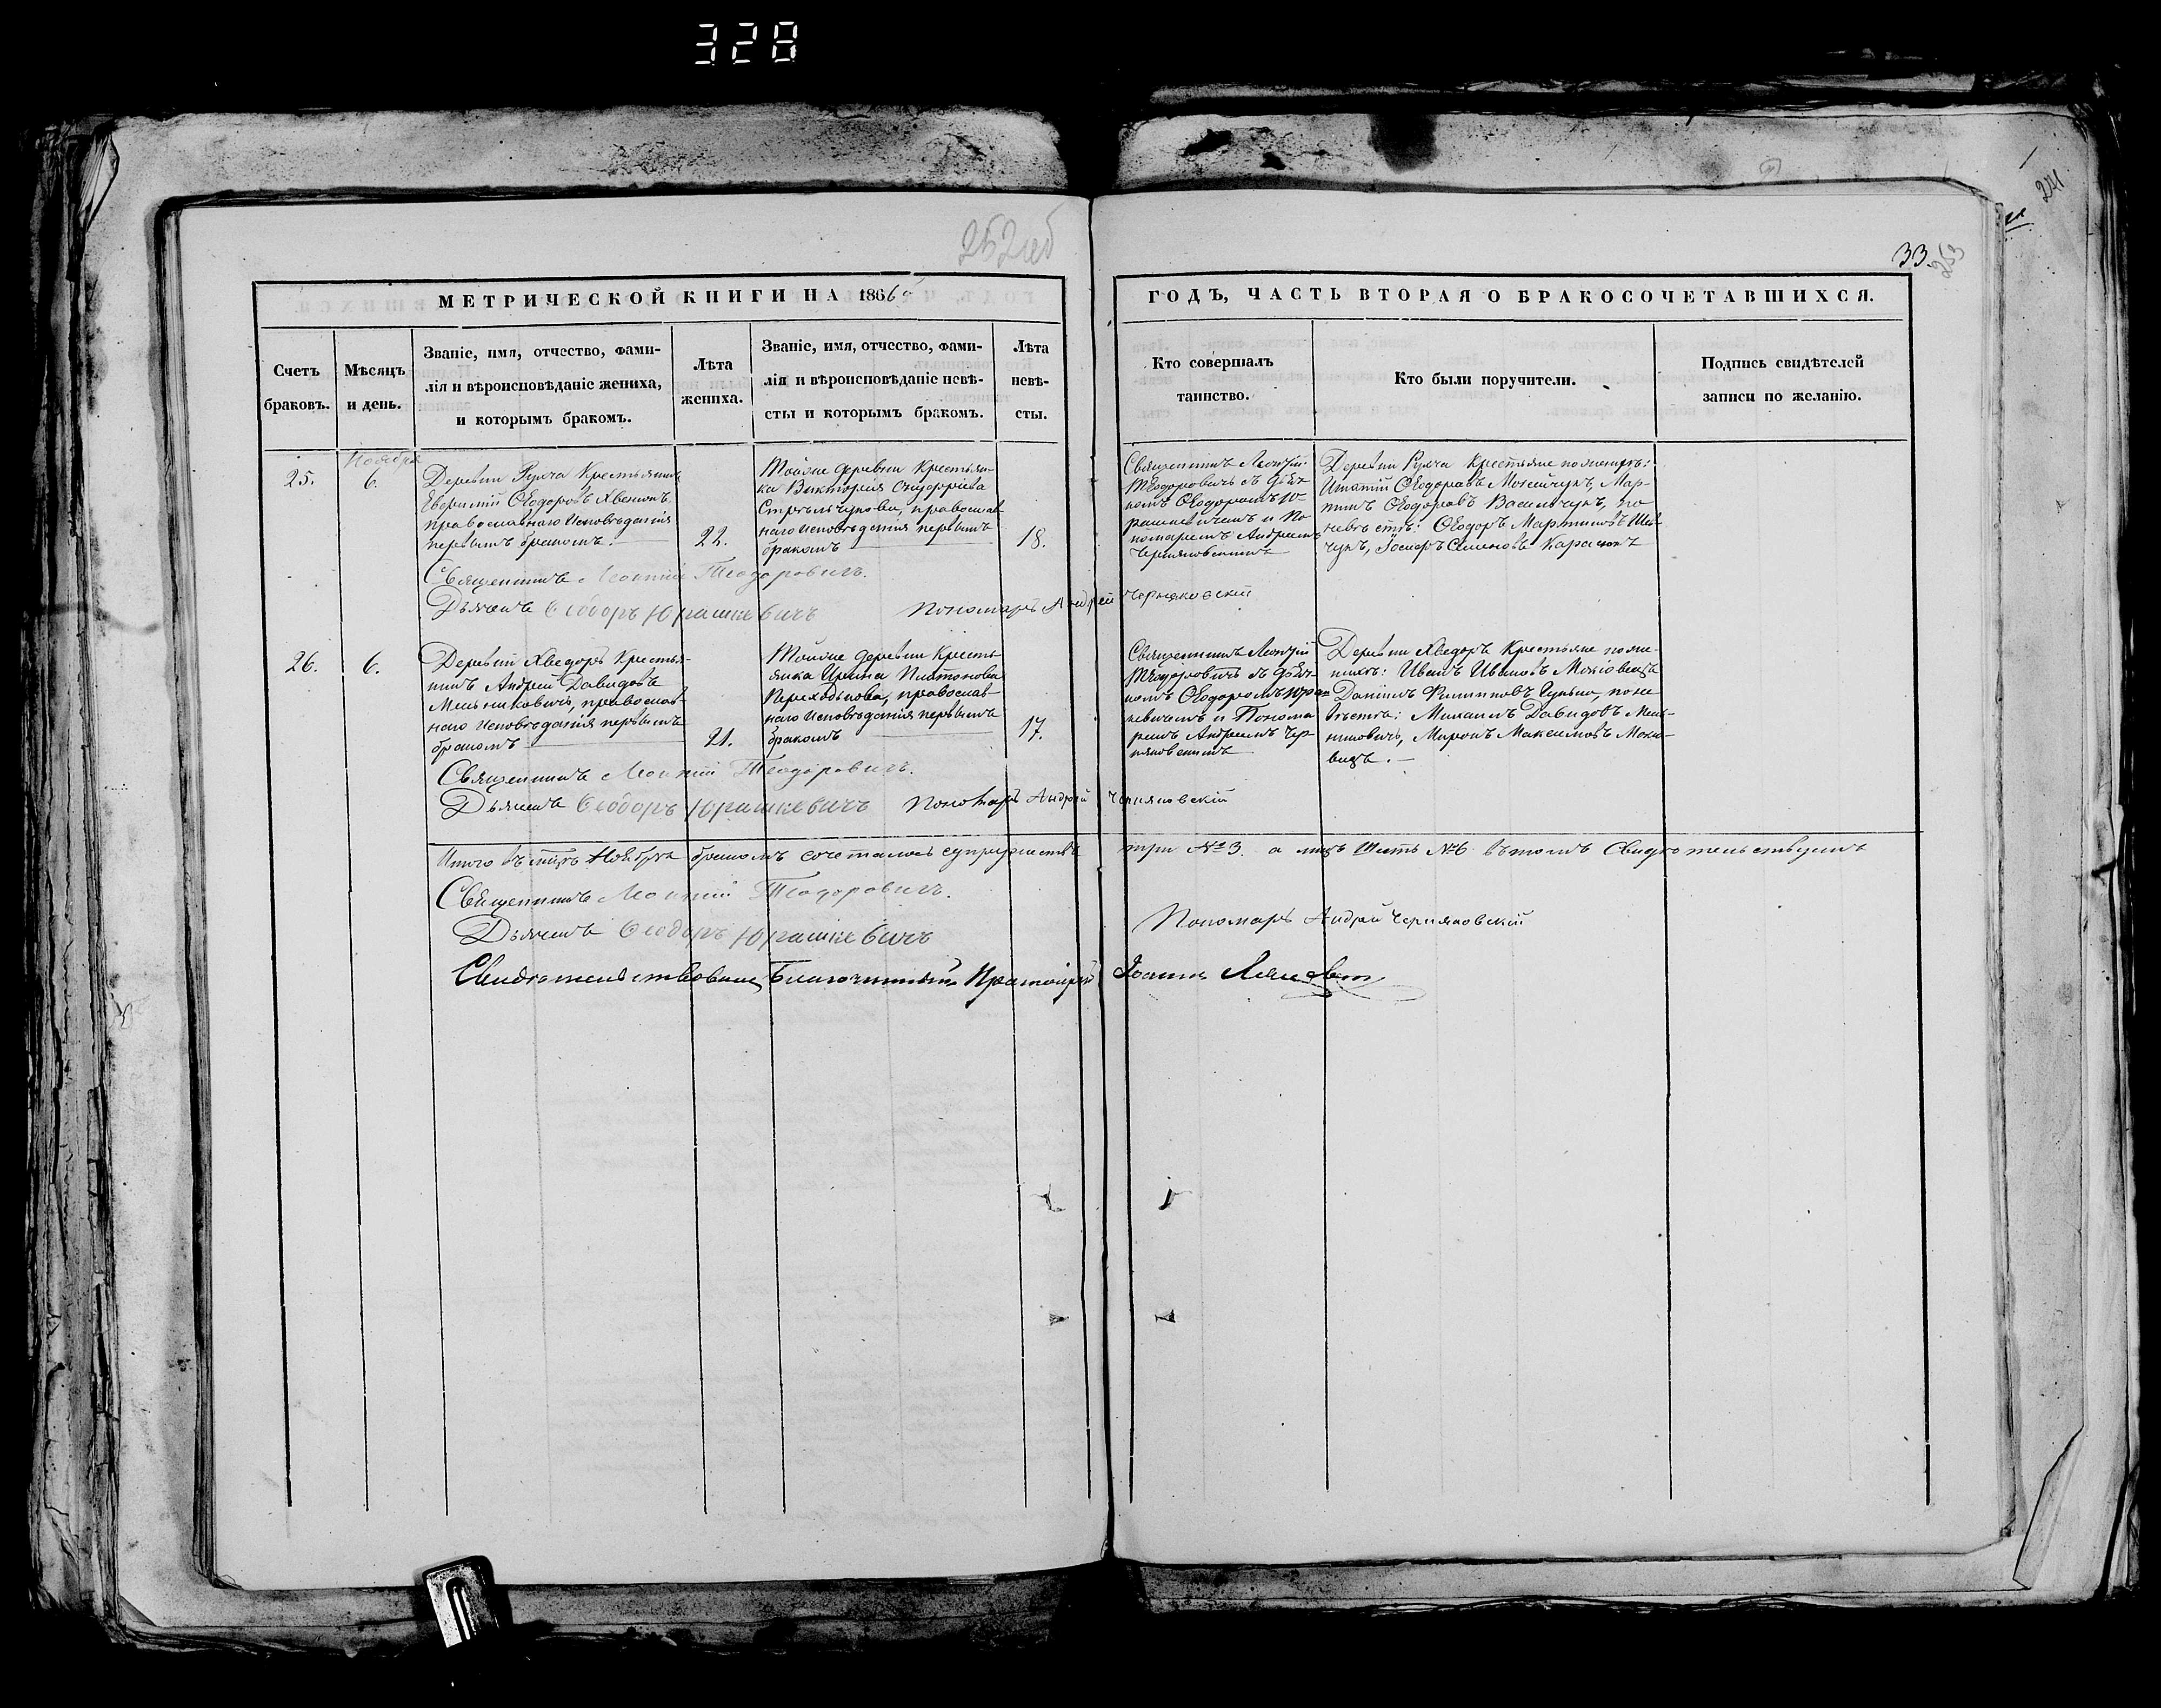 328
252об
33
263
241
МЕТРИЧЕСКОЙ КНИГИ НА 1866
ГОДЪ, ЧАСТЬ ВТОРАЯ О БРАКОСОЧЕТАВШИХСЯ.
Счетъ браковъ.
Мѣсяцъ и день.
Званіе, имя, отчество, фами-
лія и вѣроисповѣданіе жениха,
и которымъ бракомъ.
Лѣта
жениха.
Званіе, имя, отчество, фами-
лія и вѣроисповѣданіе невѣ-
сты и которымъ бракомъ.
Лѣта
невѣ-
сты.
Кто совершалъ
таинство.
Кто были поручители.
Подпись свидѣтелей
записи по желанію.
25.
Ноября
6.
Деревни Рулча Крестьянинъ
Ѳеодоровъ Хвесюкъ
православнаго Исповѣданія
первымъ бракомъ.
22.
Тойже деревни Крестьян-
ка Виктория
Стрельчукова, православ-
наго исповѣданія первымъ
бракомъ
18.
Священникъ Леонтій
Теодоровичъ съ Дьяч-
комъ Ѳеодоромъ Ю-
рашкевичемъ и По-
номаремъ Андреемъ
Черняковскимъ
Деревни Рулча Крестьяне по женихѣ:
Игнатій Ѳеодоровъ Мосейчукъ, Мар-
тинъ Ѳеодоровъ Васильчукъ, по
невѣстѣ: Ѳеодоръ Мартиновъ Шев-
чукъ, Іосифъ Семеновъ Карасюкъ
Священникъ Леонтій Теодоровичъ.
Дьячекъ Ѳеодоръ Юрашкевичъ Пономарь Андрей Черняковскій
26.
6.
Деревни Хведоръ Крестья-
нинъ Андрей Давидовъ
Мельниковичъ, православ-
наго Исповѣданія первымъ
бракомъ
21.
Тойже деревни Кресть-
янка Ирина Платонова
Переходькова, православ-
наго исповѣданія первымъ
бракомъ
17.
Священникъ Леонтій
Теодоровичъ съ Дьяч-
комъ Ѳеодоромъ Юраш-
кевичемъ и Понома-
ремъ Андреемъ Чер-
няковскимъ
Деревни Хведоръ Крестьяне по же-
нихѣ: Иванъ Ивановъ
Даніилъ Филиповъ по не-
вѣстѣ: Михаилъ Давидовъ Мель-
никовичъ, Миронъ Максимовъ
Священникъ Леонтій Теодоровичъ.
Дьячекъ Ѳеодоръ Юрашкевичъ Пономарь Андрей Черняковскій
Итого въ мцѣ Ноябрѣ бракомъ сочеталось супружествъ три №3. а лицъ Шесть №6 въ томъ Свидѣтельствуемъ
Священникъ Леонтій Теодоровичъ.
Дьячекъ Ѳеодоръ Юрашкевичъ
Пономарь Андрей Черняковскій
Свидѣтельствовалъ Благочинный Протоіерей Іоаннъ